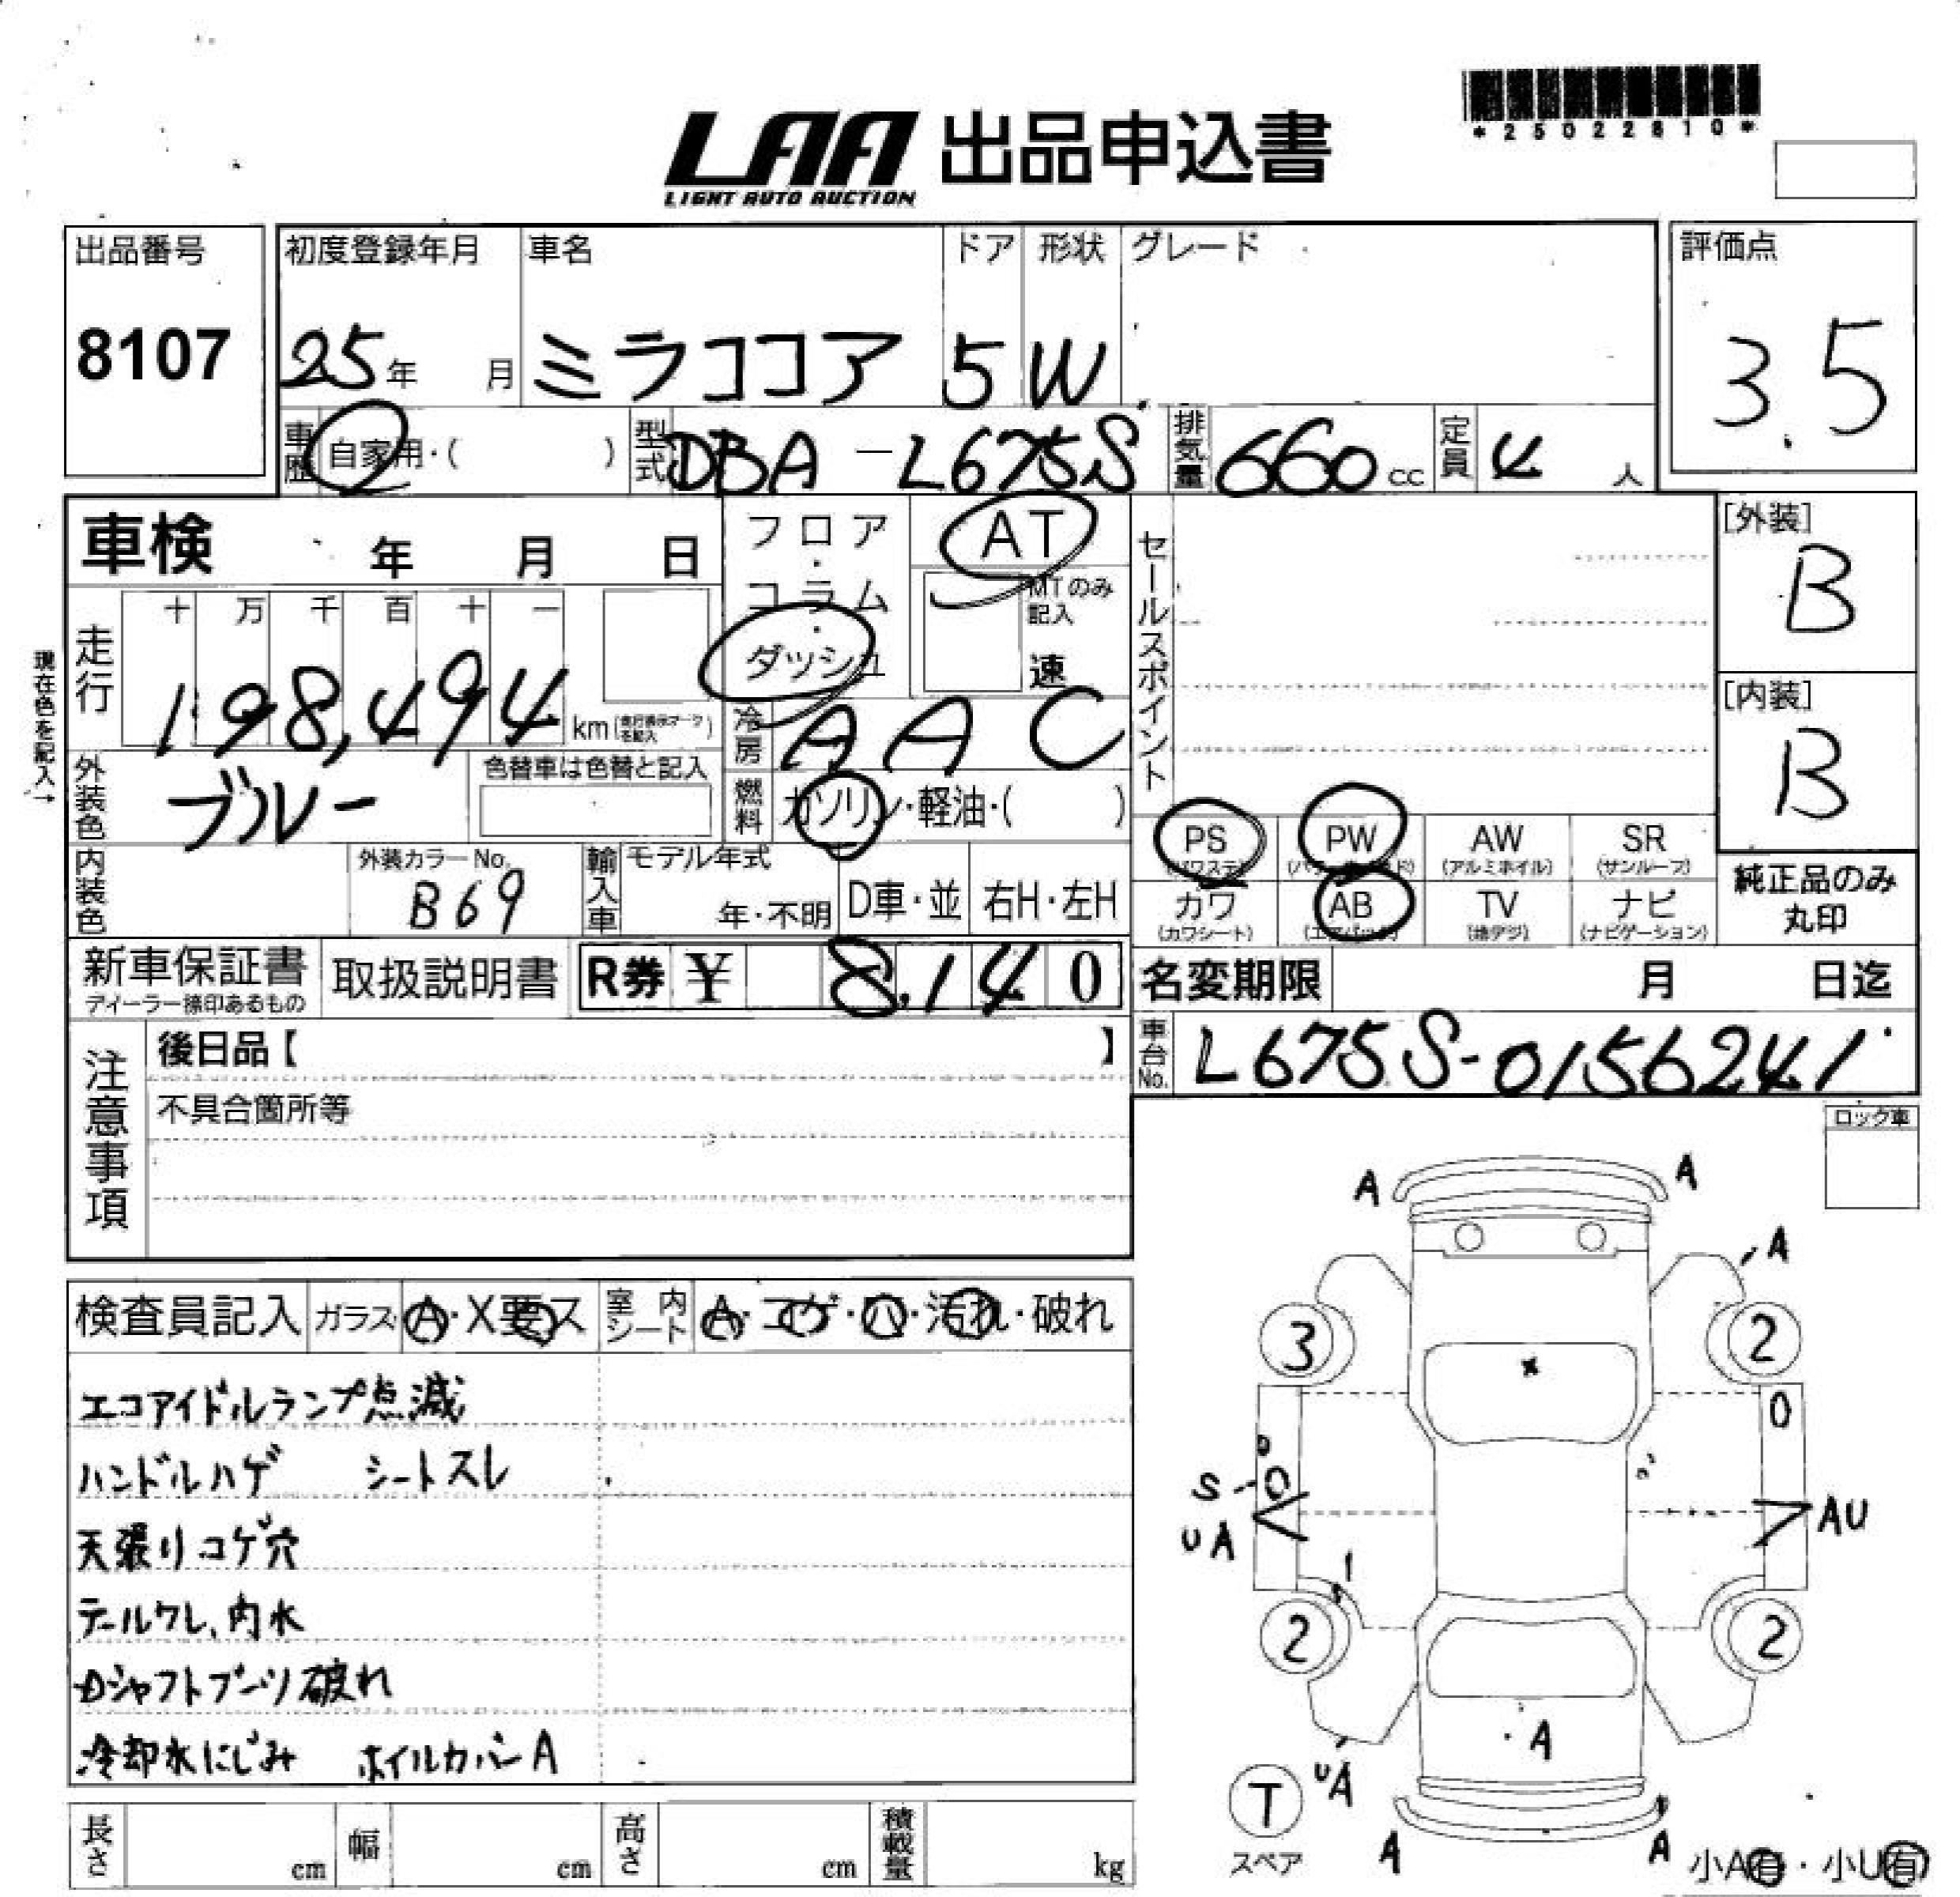 *25022810*
LAA 出品申込書
LIGHT AUTO AUCTION
出品番号 初度登録年月 車名 ドア 形状 グレード 評価点
8107 25年 月 ミラココア 5 W 3.5
車歴 自家用・( ) 型式 DBA-L675S 排気量 660 cc 定員 4 人
車検 年 月 日 フロア・コラム・ダッシュ AT セールスポイント [外装]
B
MTのみ記入
速
現在色を記入→
走行 十 万 千 百 十 一
198,494 km
冷房 AAC
[内装]
B
外装色 ブルー 色替車は色替と記入 燃料 ガソリン・軽油・( )
PS PW AW SR
(パワステ) (アルミホイル) (サンルーフ)
内装色 外装カラーNo. 輸入車 モデル年式
B69 年・不明 D車・並 右H・左H
カワ AB TV ナビ
(カワシート) (エアバッグ) (地デジ) (ナビゲーション)
純正品のみ
丸印
新車保証書 取扱説明書 R券 ¥ 8,140 名変期限 月 日迄
ディーラー捺印あるもの
注意事項 後日品【 】 車台No. L675S-0156241
不具合箇所等
ロック車
A A
A
検査員記入 ガラス A・X要ス 室内シート A・コゲ・ハ・汚れ・破れ
3 2
エコアイドルランプ点滅
ハンドルハゲ シートスレ
S
UA AU
天張りコゲ穴
テールワレ、内水
2 2
Dシャフトブーツ破れ
冷却水にじみ ホイルカバーA
A
T UA
スペア A A 小A有・小U有
長さ cm 幅 cm 高さ cm 積載量 kg